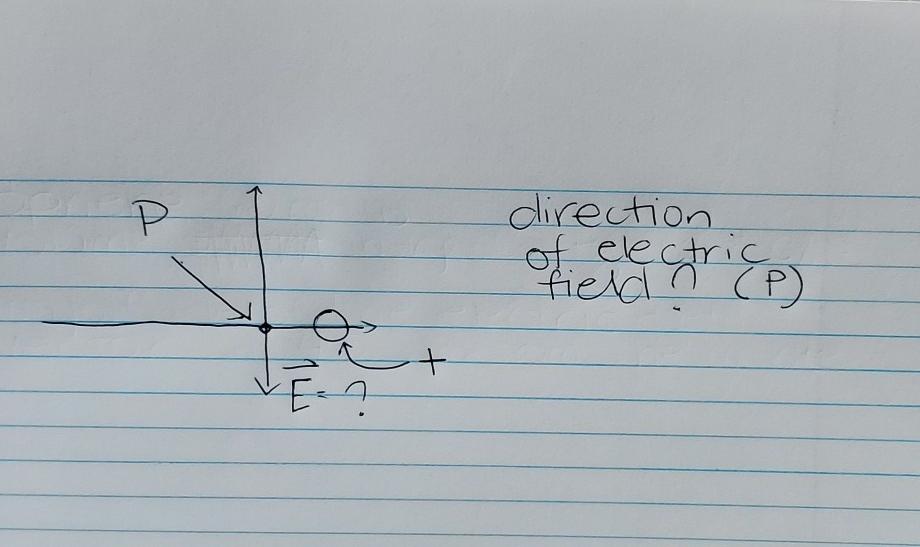 P
direction
of electric
field? (P)
+
E⃗ = ?